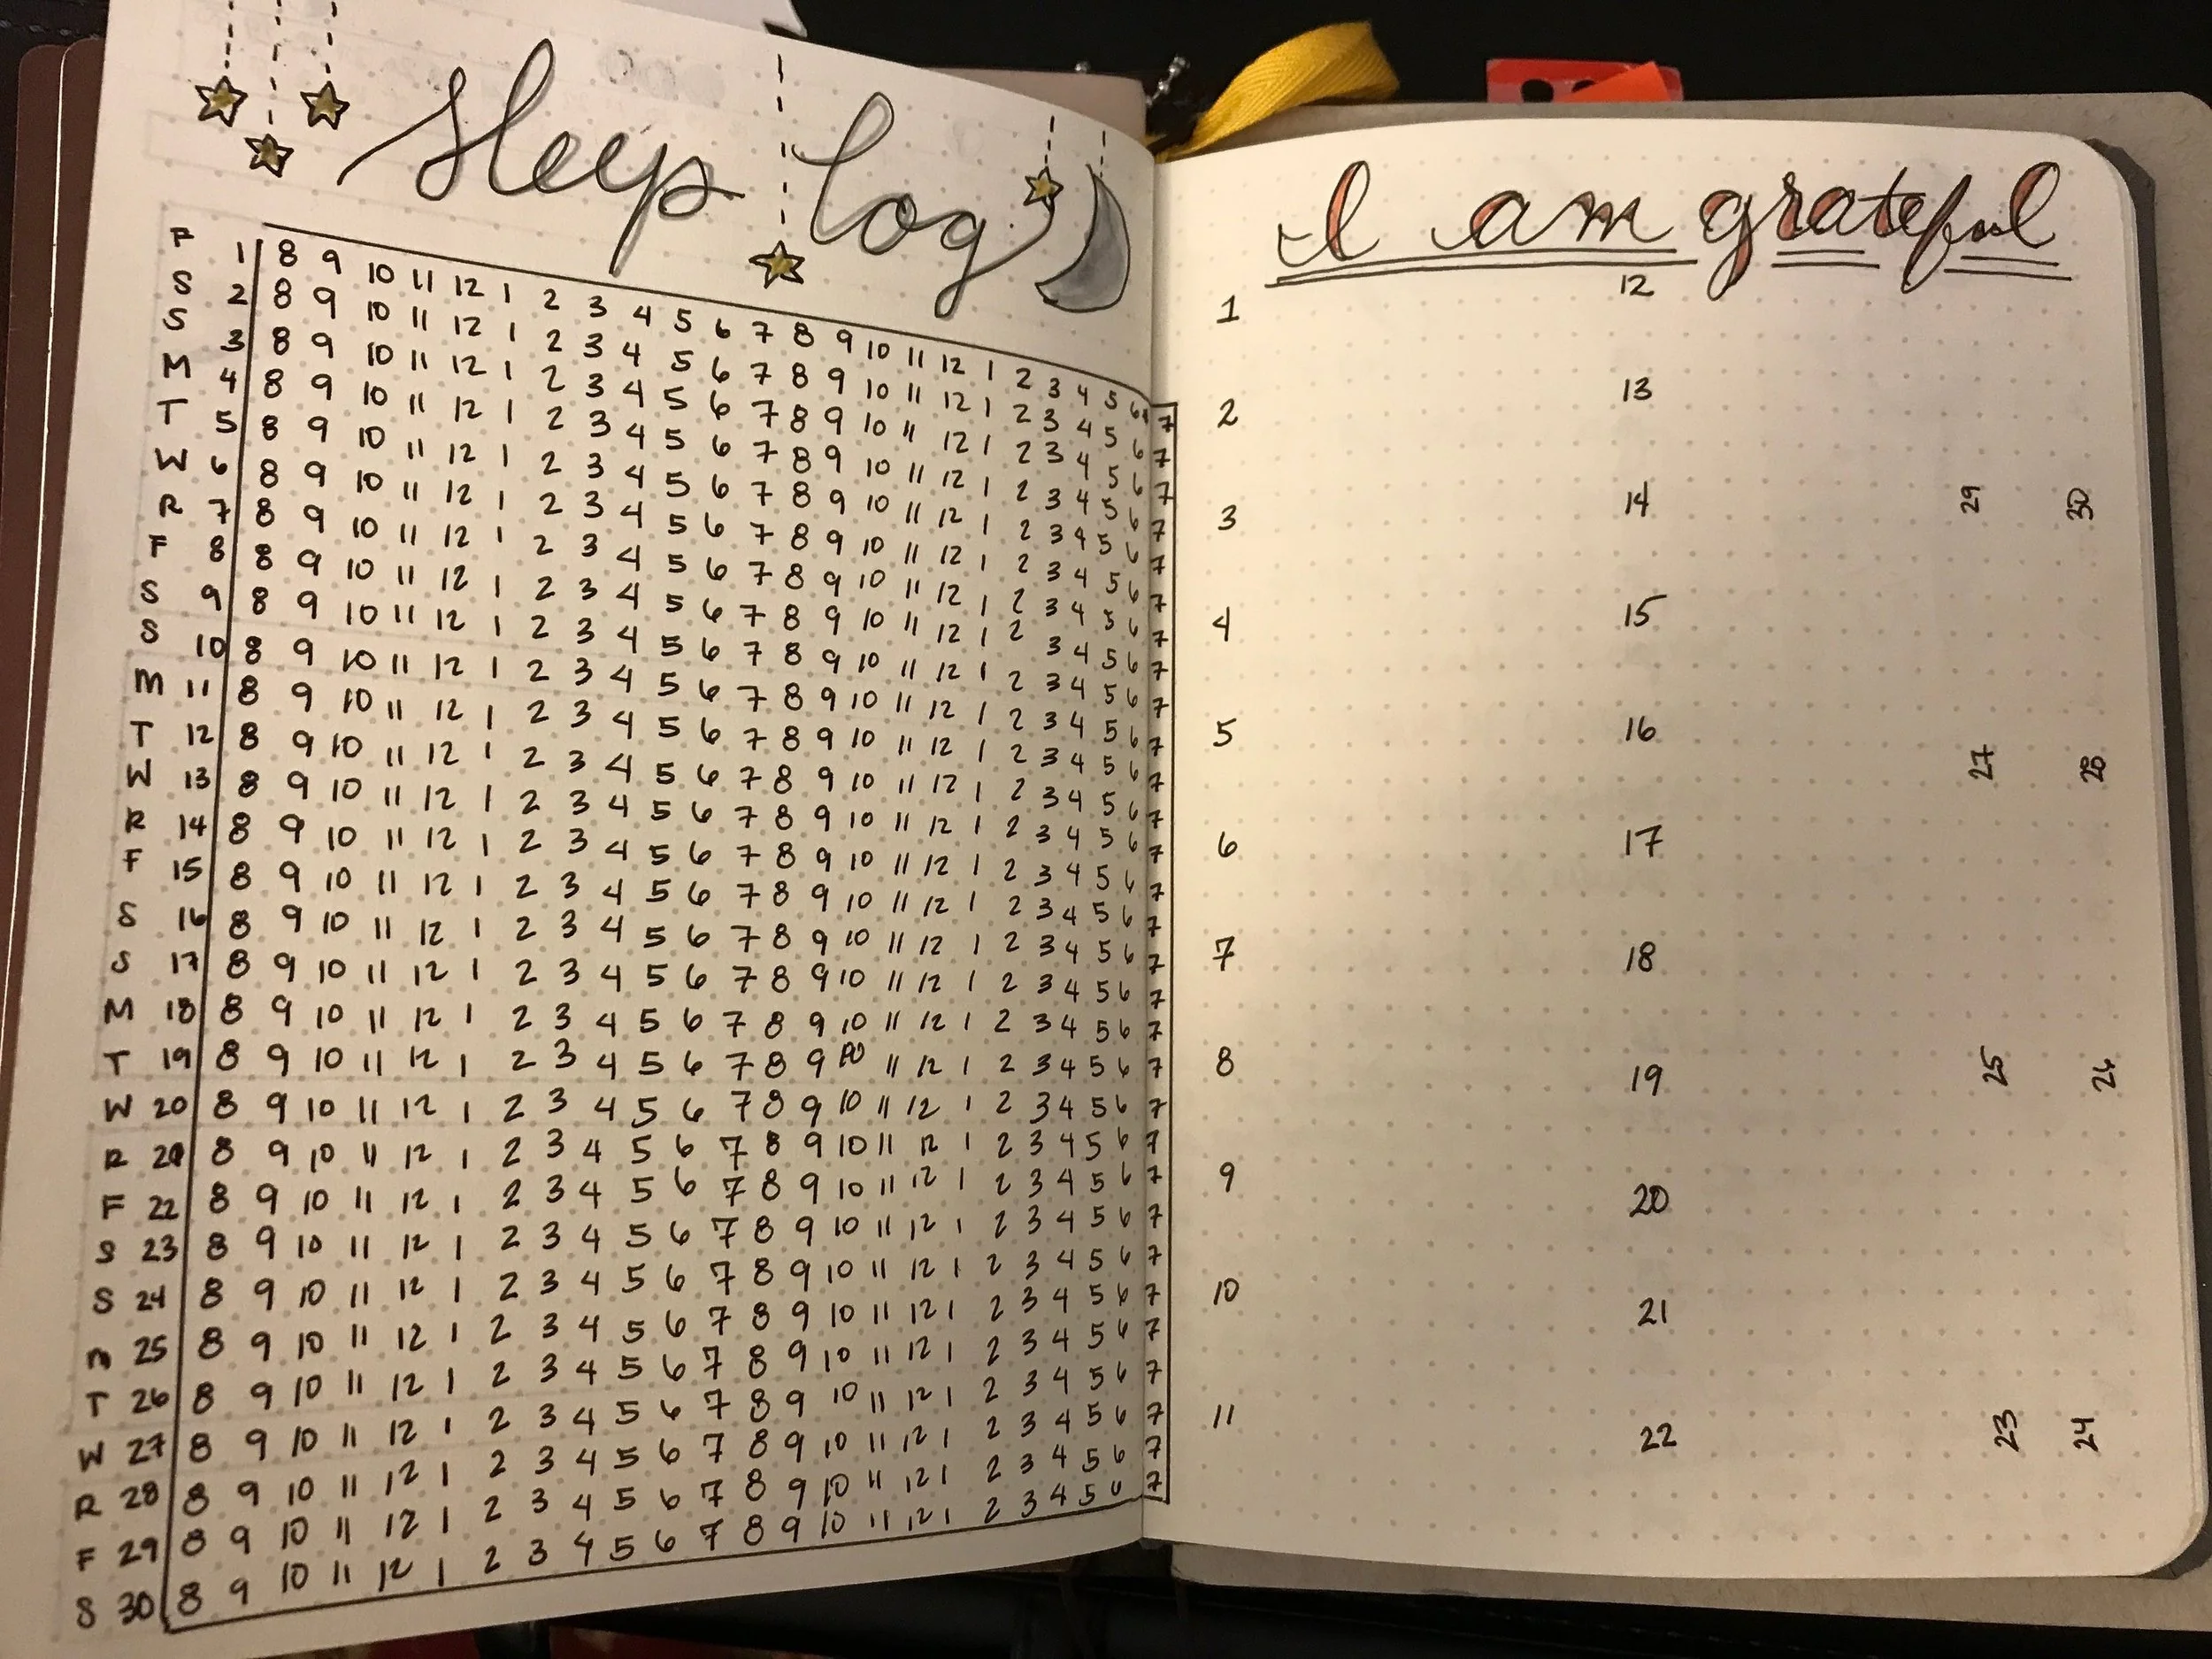 Sleep Log
F 1 8 9 10 11 12 1 2 3 4 5 6 7 8 9 10 11 12 1 2 3 4 5 6 7
S 2 8 9 10 11 12 1 2 3 4 5 6 7 8 9 10 11 12 1 2 3 4 5 6 7
S 3 8 9 10 11 12 1 2 3 4 5 6 7 8 9 10 11 12 1 2 3 4 5 6 7
M 4 8 9 10 11 12 1 2 3 4 5 6 7 8 9 10 11 12 1 2 3 4 5 6 7
T 5 8 9 10 11 12 1 2 3 4 5 6 7 8 9 10 11 12 1 2 3 4 5 6 7
W 6 8 9 10 11 12 1 2 3 4 5 6 7 8 9 10 11 12 1 2 3 4 5 6 7
R 7 8 9 10 11 12 1 2 3 4 5 6 7 8 9 10 11 12 1 2 3 4 5 6 7
F 8 8 9 10 11 12 1 2 3 4 5 6 7 8 9 10 11 12 1 2 3 4 5 6 7
S 9 8 9 10 11 12 1 2 3 4 5 6 7 8 9 10 11 12 1 2 3 4 5 6 7
S 10 8 9 10 11 12 1 2 3 4 5 6 7 8 9 10 11 12 1 2 3 4 5 6 7
M 11 8 9 10 11 12 1 2 3 4 5 6 7 8 9 10 11 12 1 2 3 4 5 6 7
T 12 8 9 10 11 12 1 2 3 4 5 6 7 8 9 10 11 12 1 2 3 4 5 6 7
W 13 8 9 10 11 12 1 2 3 4 5 6 7 8 9 10 11 12 1 2 3 4 5 6 7
R 14 8 9 10 11 12 1 2 3 4 5 6 7 8 9 10 11 12 1 2 3 4 5 6 7
F 15 8 9 10 11 12 1 2 3 4 5 6 7 8 9 10 11 12 1 2 3 4 5 6 7
S 16 8 9 10 11 12 1 2 3 4 5 6 7 8 9 10 11 12 1 2 3 4 5 6 7
S 17 8 9 10 11 12 1 2 3 4 5 6 7 8 9 10 11 12 1 2 3 4 5 6 7
M 18 8 9 10 11 12 1 2 3 4 5 6 7 8 9 10 11 12 1 2 3 4 5 6 7
T 19 8 9 10 11 12 1 2 3 4 5 6 7 8 9 10 11 12 1 2 3 4 5 6 7
W 20 8 9 10 11 12 1 2 3 4 5 6 7 8 9 10 11 12 1 2 3 4 5 6 7
R 21 8 9 10 11 12 1 2 3 4 5 6 7 8 9 10 11 12 1 2 3 4 5 6 7
F 22 8 9 10 11 12 1 2 3 4 5 6 7 8 9 10 11 12 1 2 3 4 5 6 7
S 23 8 9 10 11 12 1 2 3 4 5 6 7 8 9 10 11 12 1 2 3 4 5 6 7
S 24 8 9 10 11 12 1 2 3 4 5 6 7 8 9 10 11 12 1 2 3 4 5 6 7
M 25 8 9 10 11 12 1 2 3 4 5 6 7 8 9 10 11 12 1 2 3 4 5 6 7
T 26 8 9 10 11 12 1 2 3 4 5 6 7 8 9 10 11 12 1 2 3 4 5 6 7
W 27 8 9 10 11 12 1 2 3 4 5 6 7 8 9 10 11 12 1 2 3 4 5 6 7
R 28 8 9 10 11 12 1 2 3 4 5 6 7 8 9 10 11 12 1 2 3 4 5 6 7
F 29 8 9 10 11 12 1 2 3 4 5 6 7 8 9 10 11 12 1 2 3 4 5 6 7
S 30 8 9 10 11 12 1 2 3 4 5 6 7 8 9 10 11 12 1 2 3 4 5 6 7
I am grateful
1 12
2 13
3 14 29 30
4 15
5 16 27 28
6 17
7 18
8 19 25 26
9 20
10 21
11 22 23 24